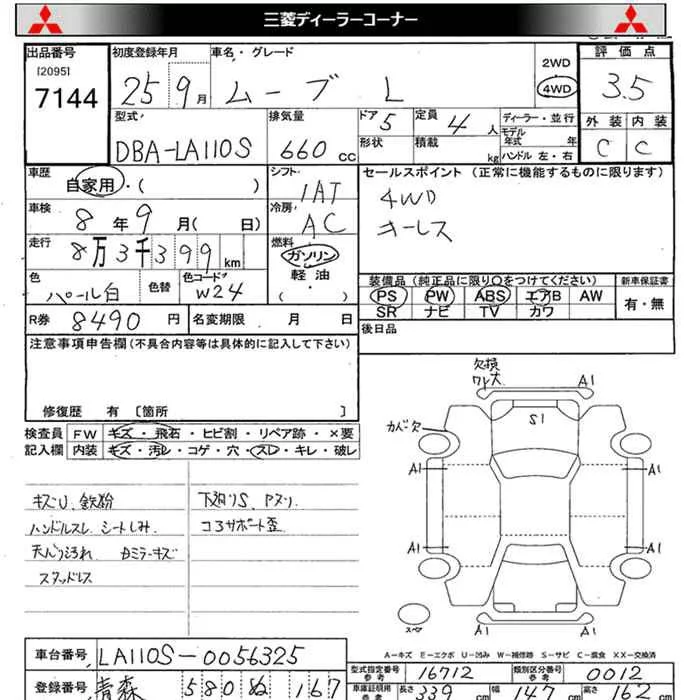 三菱ディーラーコーナー
出品番号 初度登録年月 車名・グレード 2WD 評価点
[2095] 7144 25 9月 ムーブ L 4WD 3.5
型式 排気量 ドア 5 定員 4人 ディーラー・並行 外装 内装
DBA-LA110S 660cc 形状 積載 kg モデル年式 年 ハンドル 左・右 C C
車歴 シフト セールスポイント (正常に機能するものに限ります)
自家用・( ) 1AT 4WD
車検 8年9月( 日) 冷房 AC キーレス
走行 8万3千399km 燃料 ガソリン
軽油・( )
色 色替 色コード 装備品 (純正品に限り○をつけてください) 新車保証書
パール白 W24 PS PW ABS エアB AW 有・無
SR ナビ TV カワ
R券 8490円 名変期限 月 日 後日品
注意事項申告欄(不具合内容等は具体的に記入して下さい)
修復歴 有 〔箇所 〕
検査員 FW キズ・飛石・ヒビ割・リペア跡・×要
記入欄 内装 キズ・汚レ・コゲ・穴・スレ・キレ・破レ
キズU、鉄粉 下廻りS、アヌリ
ハンドルスレ シートしみ コアサポート歪
天バリ汚れ
スタッドレス
欠損
ワレ大 A1
S1
カバー欠
A1 A1
A1 A1
スペア A1 A1
A-キズ E-エクボ U-凹み W-補修跡 S-サビ C-腐食 XX-交換済
車台番号 LA110S-0056325
型式指定番号 参考 16712 類別区分番号 参考 0012
登録番号 青森 580 ぬ 167
車庫証明用 参考 長さ 339cm 幅 147cm 高さ 162cm